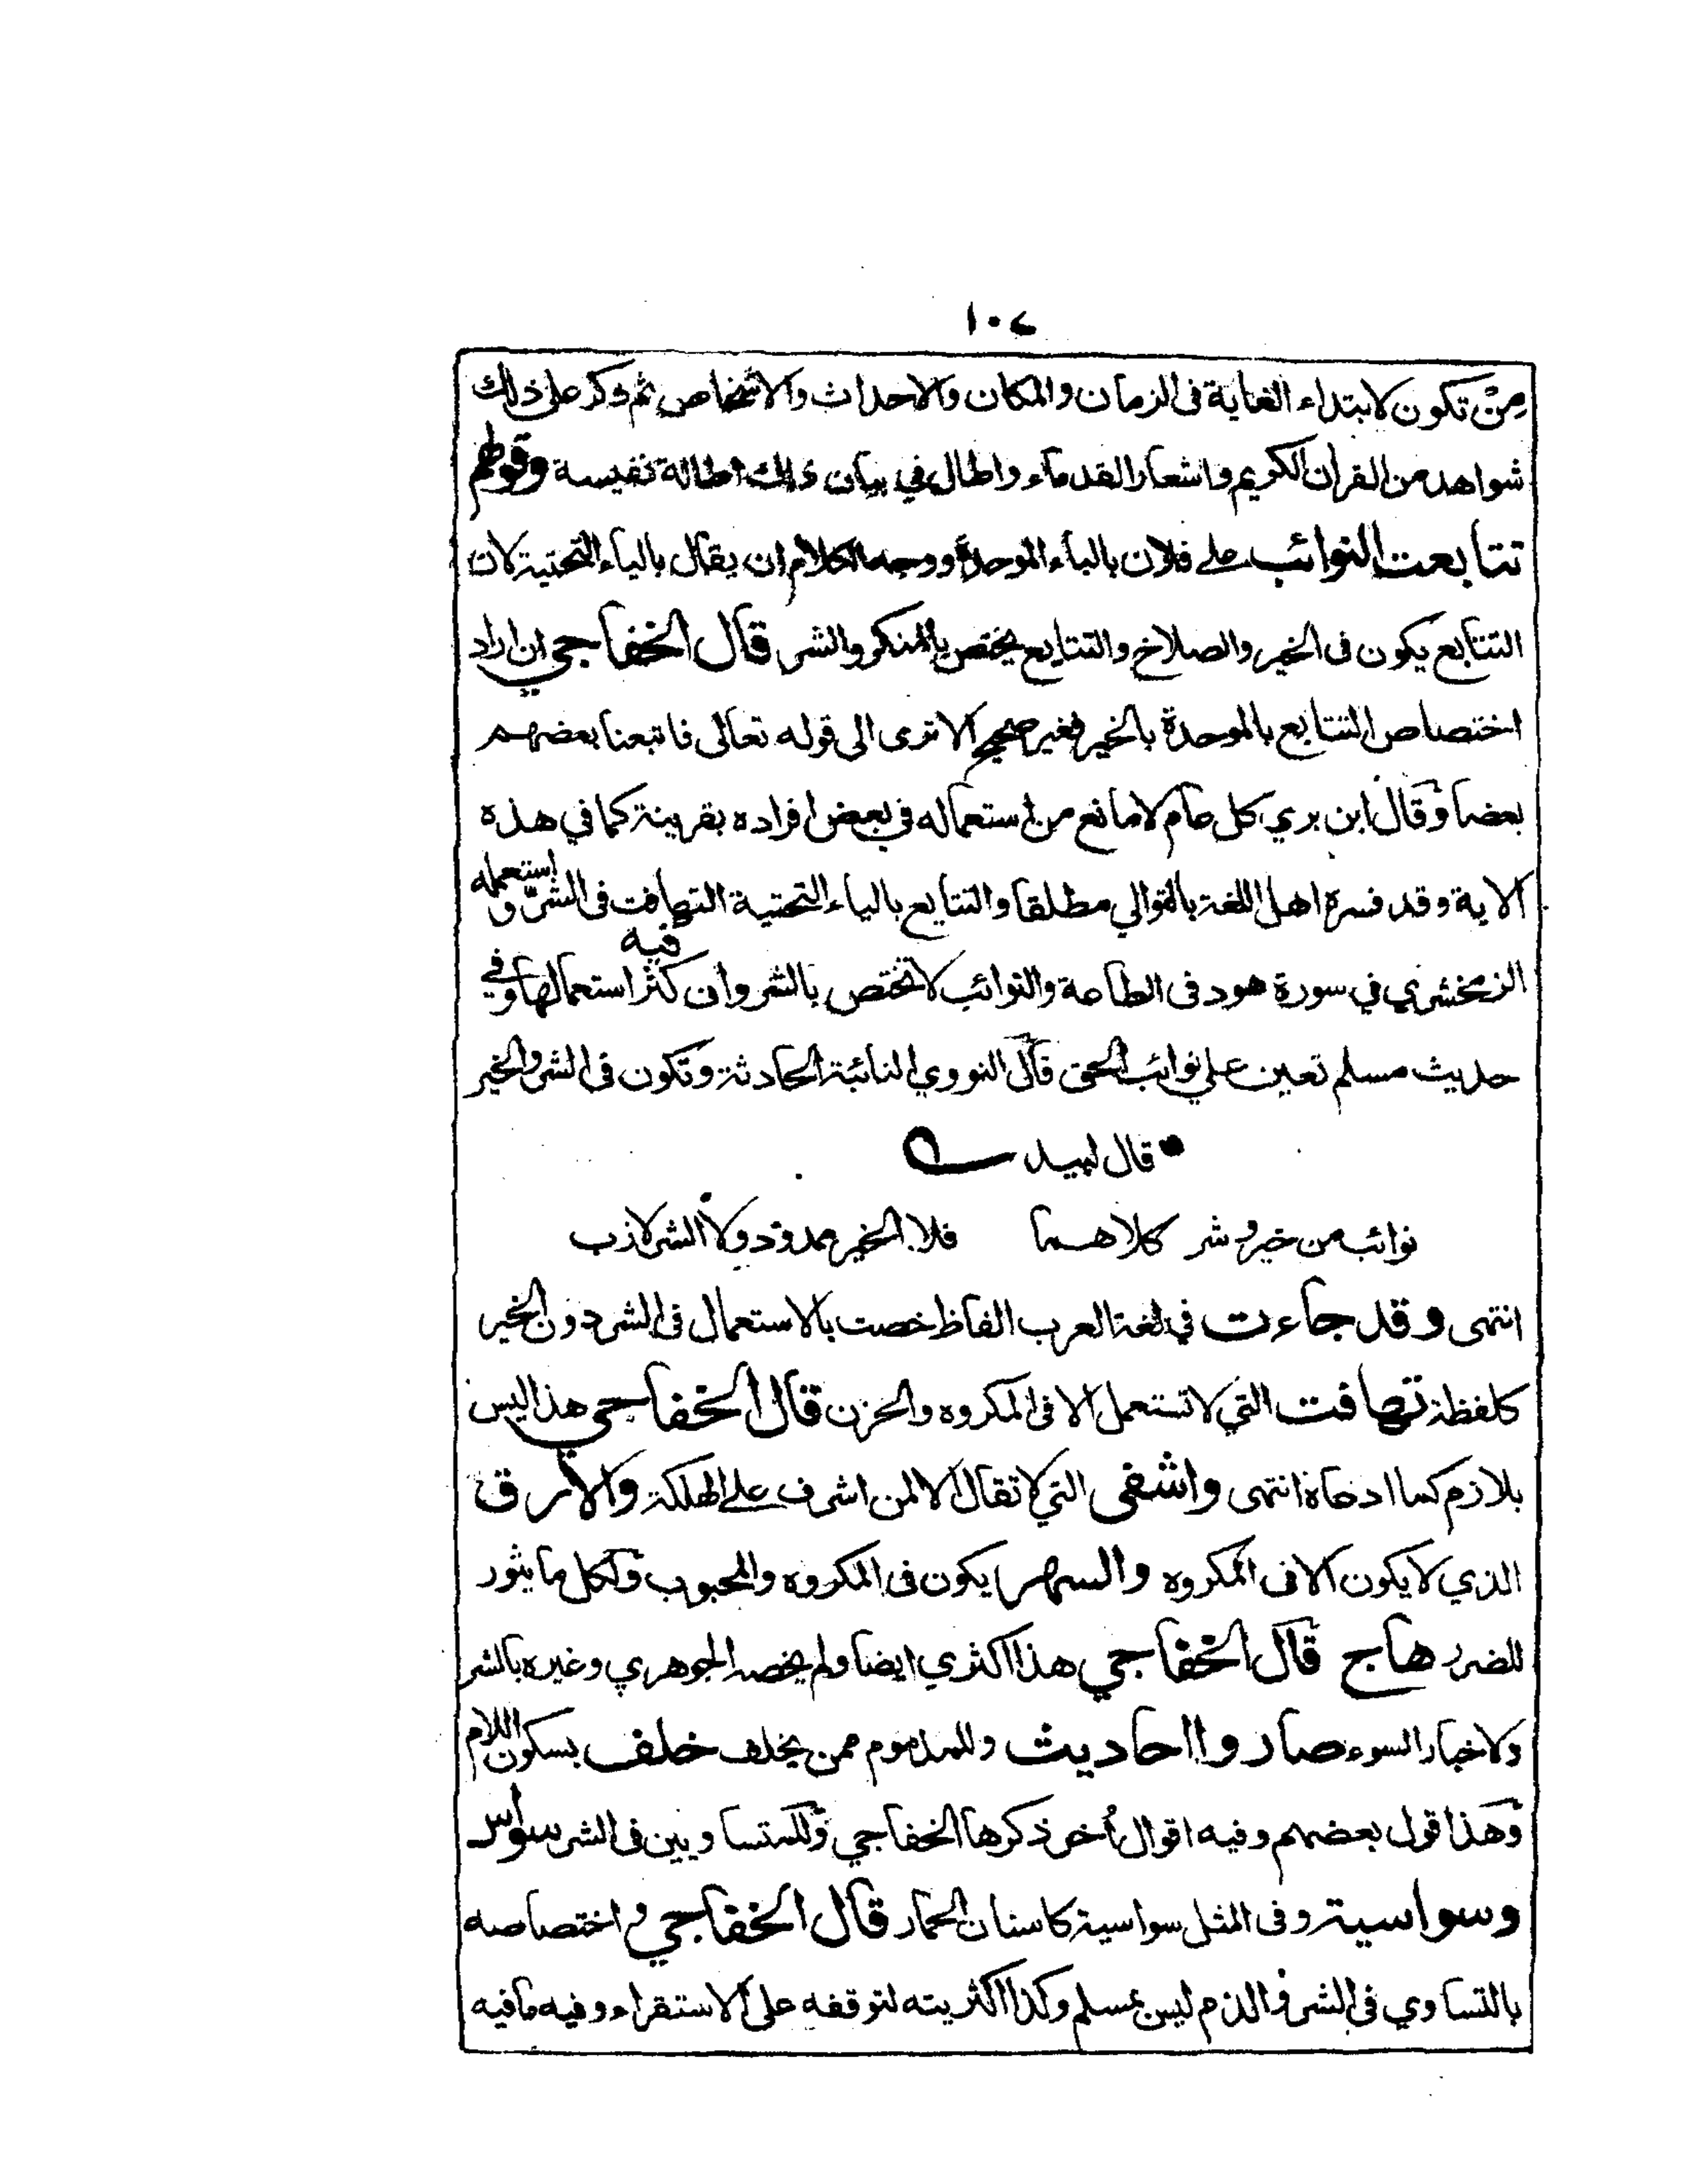 ١٠٢
مِنْ تكون لابتداء الغاية فى الزمان والمكان والاحداث والاشخاص ثم ذكر على ذلك
شواهد من القران الكريم واشعار القدماء واطال في بيان ذلك اطالة نفيسة وقولهم
تتابعت النوائب على فلان بالباء الموحدة ووجه الكلام ان يقال بالياء التحتية لان
التتابع يكون فى الخير والصلاخ والتتايع يختص بالمنكر والشر قال الخفاجي ان اراد
اختصاص التتابع بالموحدة بالخير فغير صحيح الا ترى الى قوله تعالى فاتبعنا بعضهم
بعضا وقال ابن بري كل عام لا مانع من استعماله فى بعض افراده بقرينة كما في هذه
الاية وقد فسره اهل اللغة بالتوالي مطلقا والتتايع بالياء التحتية التهافت فى الشر واستعمله
الزمخشري في سورة هود فى الطاعة والنوائب لا تختص بالشر وان كثر استعمالها فيه وفي
حديث مسلم تعين على نوائب الحق قال النووي النائبة الحادثة وتكون فى الشر والخير
قال لبيد
نوائب من خير وشر كلاهما فلا الخير ممدود ولا الشر لازب
انتهى وقد جاءت في لغة العرب الفاظ خصت بالاستعمال فى الشر دون الخير
كلفظة تهافت التي لا تستعمل الا فى المكروه والحزن قال الخفاجي هذا ليس
بلازم كما ادعاه انتهى واشفى التي لا تقال الا لمن اشرف على الهلكة والارق
الذي لا يكون الا فى المكروه والسهر يكون فى المكروه والمحبوب ولكل ما يثور
للضرر هاج قال الخفاجي هذا اكثري ايضا ولم يخصه الجوهري وغيره بالشر
ولاخبار السوء صاروا احاديث وللمذموم ممن يخلف خلف بسكون اللام
وهذا قول بعضهم وفيه اقوال أخر ذكرها الخفاجي وللمتساويين فى الشر سواس
وسواسية وفى المثل سواسية كاسنان الحمار قال الخفاجي واختصاصه
بالتساوي فى الشر والذم ليس بمسلم وكذا اكثريته لتوقفه على الاستقراء وفيه ما فيه